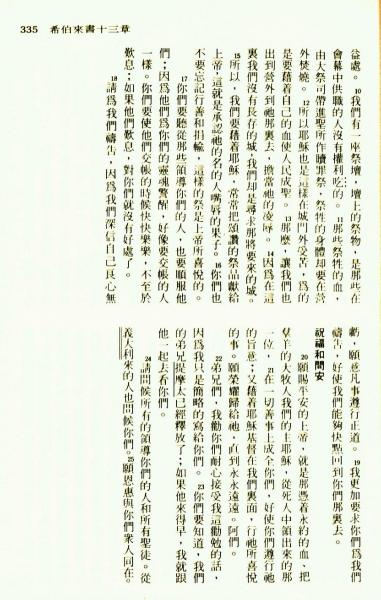 335 希伯來書十三章
益處。10我們有一座祭壇，壇上的祭物，是那些在
會幕中供職的人沒有權利吃的。11那些祭牲的血，
由大祭司帶進聖所作贖罪祭，祭牲的身體却要在營
外焚燒。12所以耶穌也是這樣在城門外受苦，爲的
是要藉着自己的血使人民成聖。13那麼，讓我們也
出到營外到祂那裏去，擔當祂的凌辱。14因爲在這
裏我們沒有長存的城，我們却是尋求那將要來的城。
15所以，我們要藉着耶穌，常常把頌讚的祭品獻給
上帝，這就是承認祂的名的人嘴唇的果子。16你們也
不要忘記行善和捐輸，這樣的祭是上帝所喜悅的。
17你們要聽從那些領導你們的人，也要順服他
們；因爲他們爲你們的靈魂警醒，好像要交帳的人
一樣。你們要使他們交帳的時候快快樂樂，不至於
歎息；如果他們歎息，對你們就沒有好處了。
18請爲我們禱告，因爲我們深信自己良心無
虧，願意凡事遵行正道。19我更加要求你們爲我們
禱告，好使我們能夠快點回到你們那裏去。
祝福和問安
20願賜平安的上帝，就是那憑着永約的血，把
羣羊的大牧人我們的主耶穌，從死人中領出來的那
一位，21在一切善事上成全你們，好使你們遵行祂
的旨意；又藉着耶穌基督在我們裏面，行祂所喜悅
的事。願榮耀歸給祂，直到永永遠遠。阿們。
22弟兄們，我勸你們耐心接受我這勸勉的話，
因爲我只是簡略的寫給你們。23你們要知道，我們
的弟兄提摩太已經釋放了；如果他來得早，我就跟
他一起去看你們。
24請問候所有的領導你們的人和所有聖徒。從
義大利來的人也問候你們。25願恩惠與你們衆人同在。